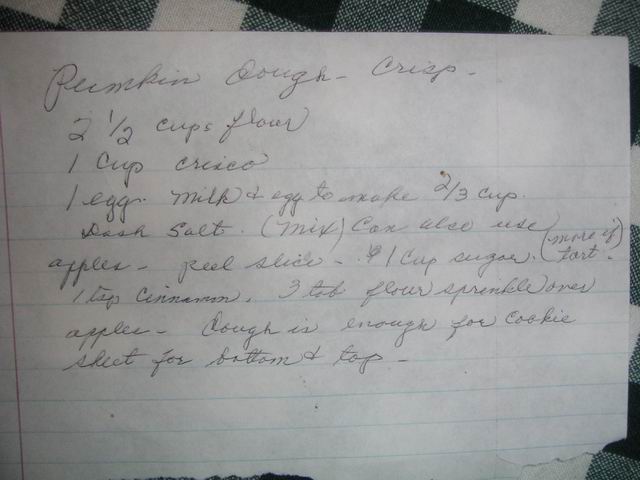 Pumkin Dough - Crisp -
2 1/2 cups flour
1 Cup crisco
1 egg. Milk & egg to make 2/3 cup.
Dash Salt. (Mix) Can also use
apples - peel slice - & 1 Cup sugar. (more if tart.
1 tsp Cinnamon. 3 tab flour sprinkle over
apples - Dough is enough for cookie
sheet for bottom & top -